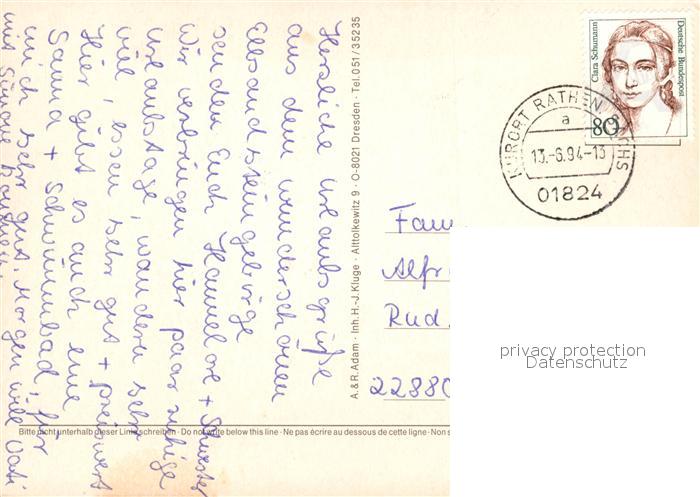 Herzliche Urlaubsgrüße
aus dem wunderschönen
Elbsandsteingebirge
senden Euch Hannelore +
Wir verbringen hier paar ruhige
Urlaubstage, wandern sehr
viel, essen sehr gut + preiswert
Hier gibt es auch eine
Sauna + Schwimmbad, für
mich sehr gut. Morgen will Vati
mit Simone kommen.
A. & R. Adam · Inh. H.-J. Kluge · Alttolkewitz 9 · O-8021 Dresden · Tel. 051/35235
Clara Schumann
Deutsche Bundespost
80
KURORT RATHEN
a
13.-6.94-13
01824
Fam
Alfr
Rud.
22880
privacy protection
Datenschutz
Bitte nicht unterhalb dieser Linie schreiben · Do not write below this line · Ne pas écrire au dessous de cette ligne · Non s